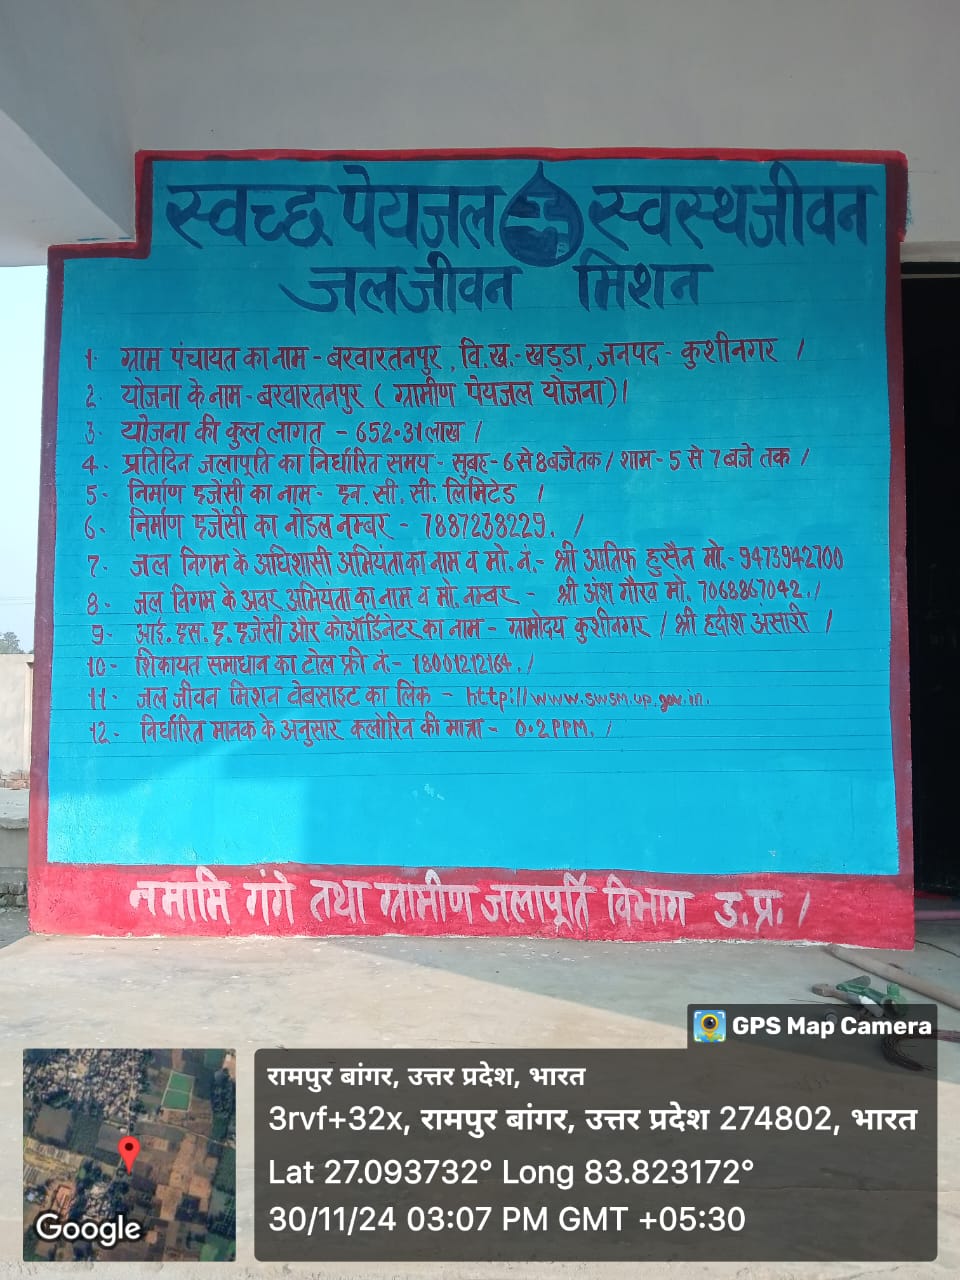 स्वच्छ पेयजल स्वस्थ जीवन
जल जीवन मिशन
1. ग्राम पंचायत का नाम - बरवारतनपुर, वि.ख.- खड्डा, जनपद - कुशीनगर /
2. योजना के नाम - बरवारतनपुर ( ग्रामीण पेयजल योजना)।
3. योजना की कुल लागत - 652.31 लाख /
4. प्रतिदिन जलापूर्ति का निर्धारित समय - सुबह - 6 से 8 बजे तक / शाम - 5 से 7 बजे तक /
5. निर्माण एजेंसी का नाम - एन. सी. सी. लिमिटेड /
6. निर्माण एजेंसी का नोडल नम्बर - 7887238229. /
7. जल निगम के अधिशासी अभियंता का नाम व मो. नं.- श्री आतिफ हुसैन मो.- 9473942700
8. जल निगम के अवर अभियंता का नाम व मो. नम्बर - श्री अंश गौरव मो. 7068867042. /
9. आई. एस. ए. एजेंसी और कोऑर्डिनेटर का नाम - ग्रामोदय कुशीनगर / श्री हदीश अंसारी /
10. शिकायत समाधान का टोल फ्री नं.- 18001212164. /
11. जल जीवन मिशन वेबसाइट का लिंक - http://www.swsm.up.gov.in.
12. निर्धारित मानक के अनुसार क्लोरिन की मात्रा - 0.2 PPM. /
नमामि गंगे तथा ग्रामीण जलापूर्ति विभाग उ.प्र. /
GPS Map Camera
रामपुर बांगर, उत्तर प्रदेश, भारत
3rvf+32x, रामपुर बांगर, उत्तर प्रदेश 274802, भारत
Lat 27.093732° Long 83.823172°
30/11/24 03:07 PM GMT +05:30
Google